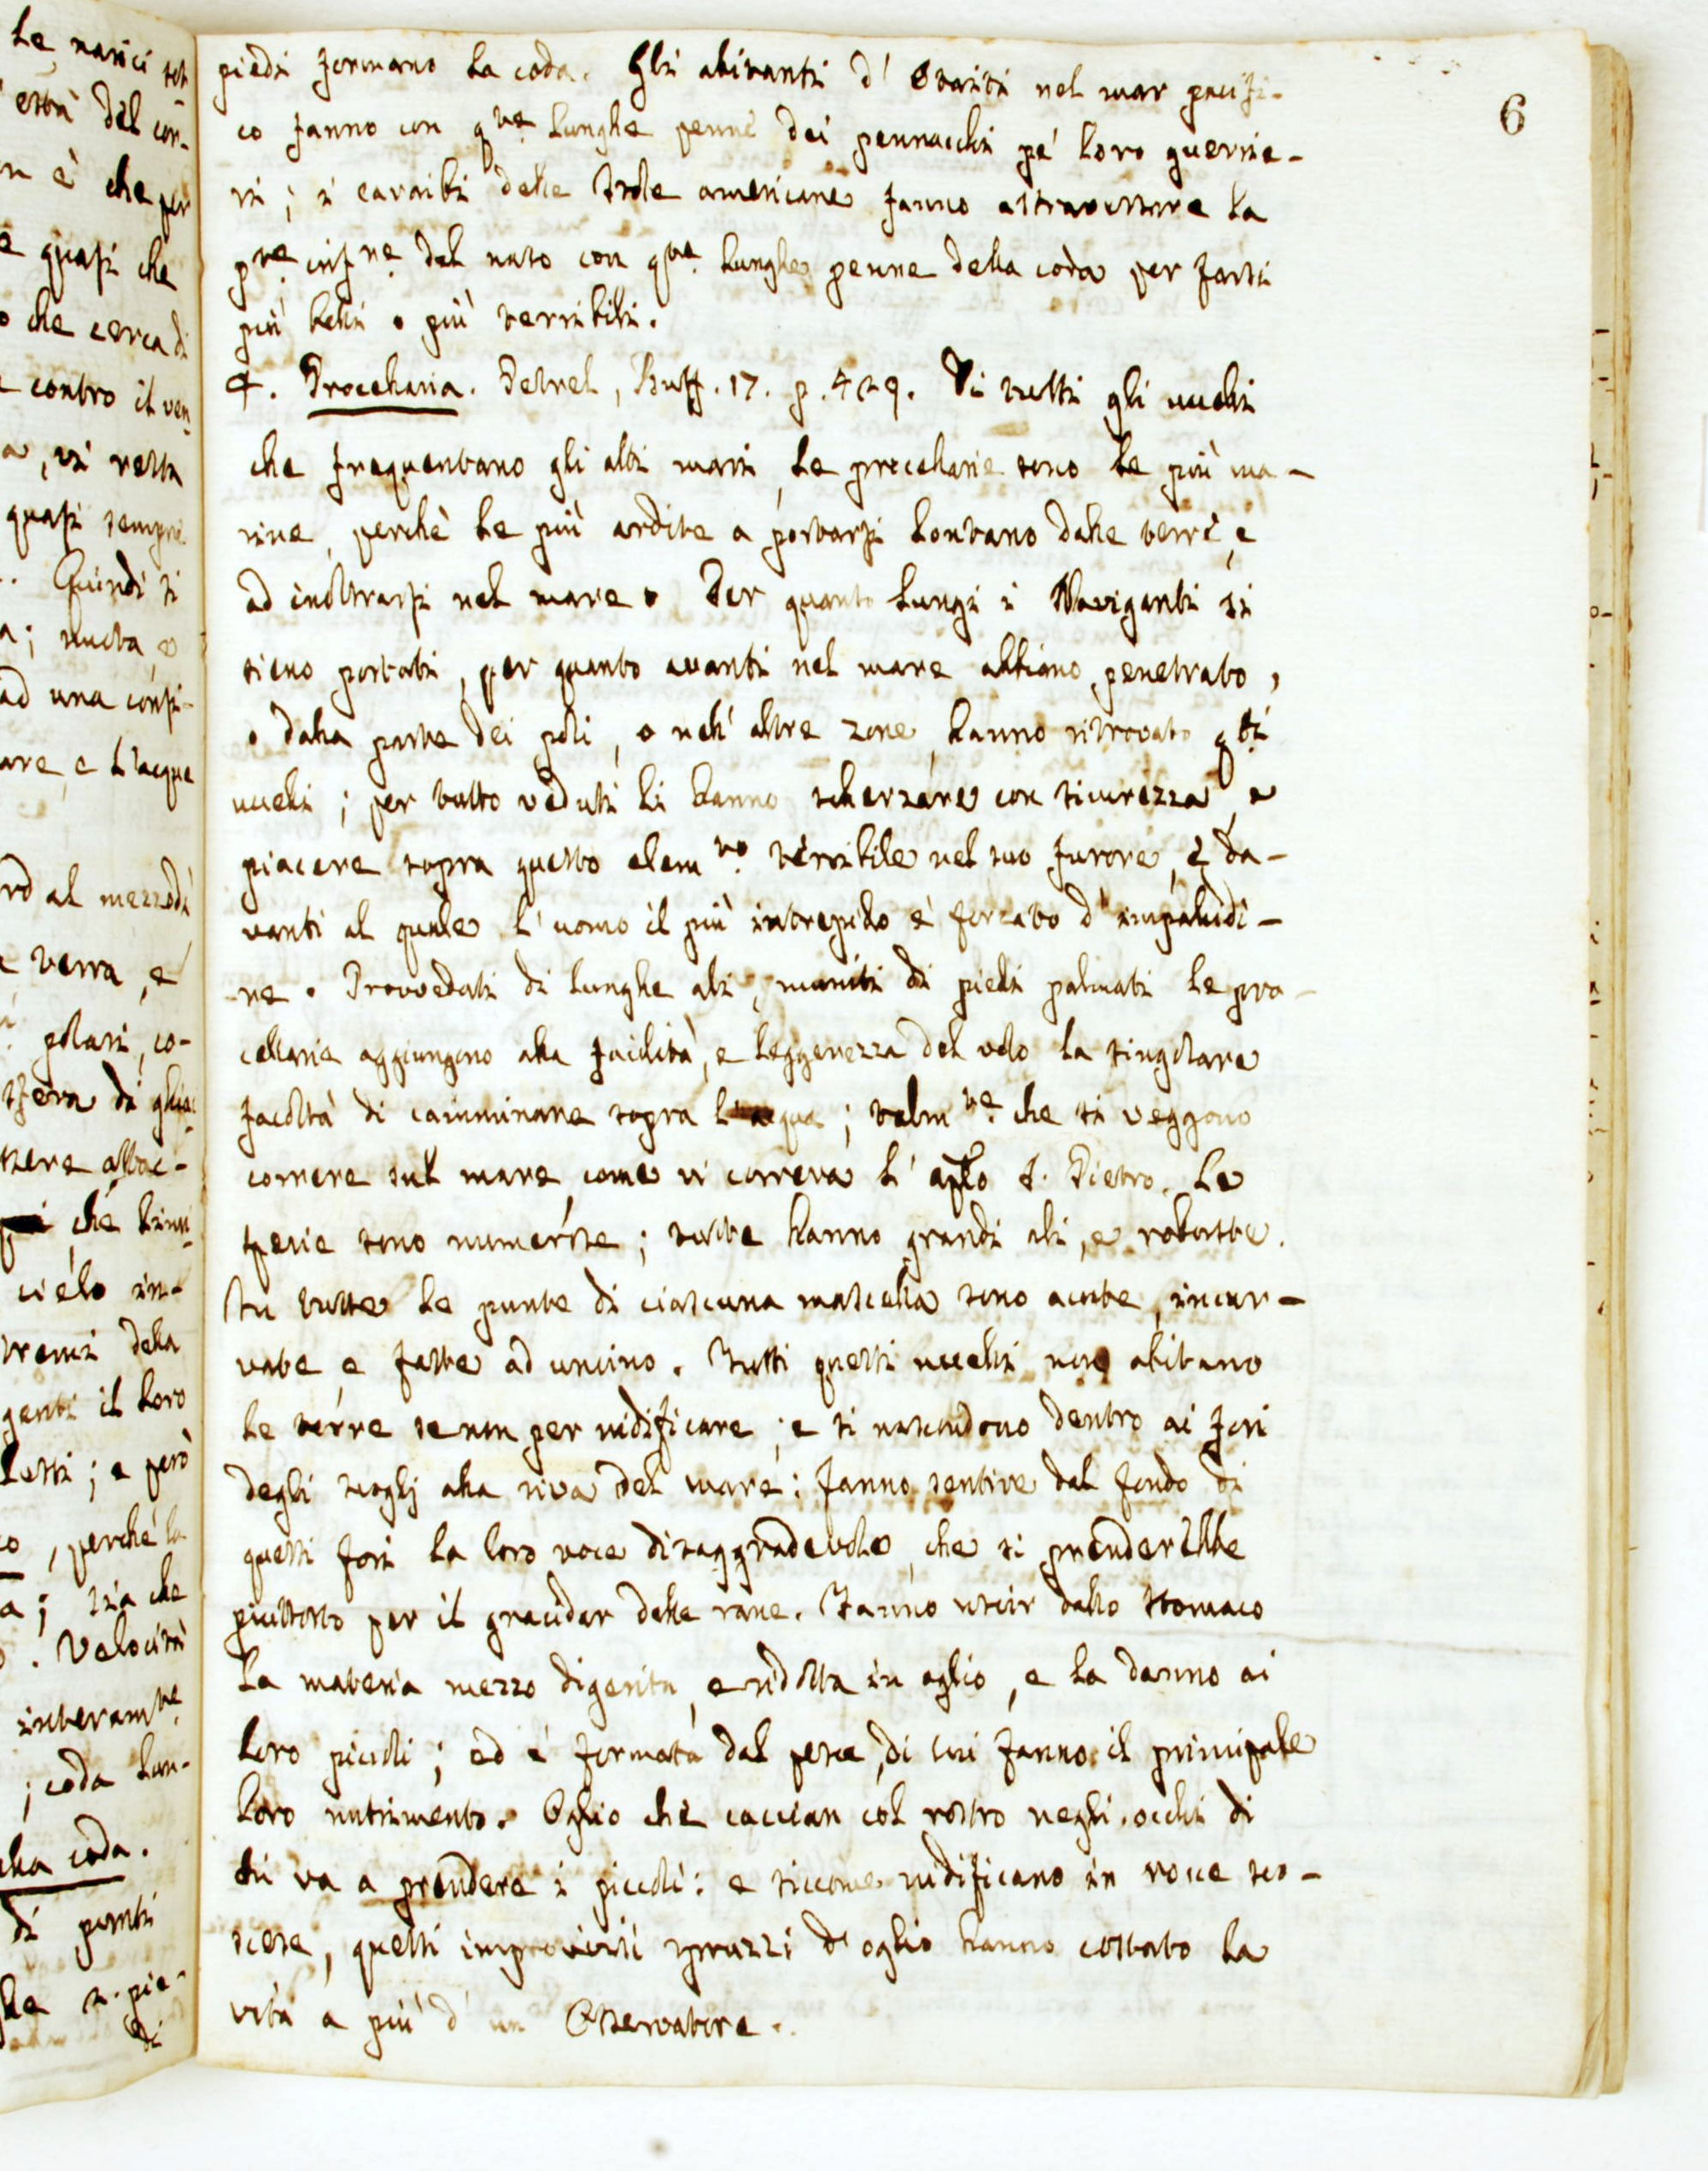 6
piedi formano la coda. Gli abitanti d' Otaiti nel mar pacifi-
co fanno con q.ste lunghe penne dei pennacchi pe' loro guerrie-
ri; i caraibi delle Isole americane fanno attraversare la
p.te inf.re del naso con q.ste lunghe penne della coda per farsi
più belli o più terribili.
4. Procellaria. Petrel, Buff. 17. p. 429. Di tutti gli uccelli
che frequentano gli alti mari, le procellarie sono le più ma-
rine, perchè le più ardite a portarsi lontano dalle terre, e
ad inoltrarsi nel mare. Per quanto lungi i Naviganti si
sieno portati, per quanto avanti nel mare abbiano penetrato,
o dalla parte dei poli, o nell' altre zone, hanno ritrovato q.sti
uccelli; per tutto veduti li hanno scherzare con sicurezza, e
piacere sopra questo elem.to terribile nel suo furore, e da-
vanti al quale l' uomo il più intrepido è forzato d' impallidi-
re. Provveduti di lunghe ali, muniti di piedi palmati le pro-
cellarie aggiungono alla facilità, e leggerezza del volo la singolare
facoltà di camminare sopra l'acqua; talm.te che si veggono
correre sul mare, come vi correva l' aplo S. Pietro. Le
specie sono numerose; tutte hanno grandi ali, e robuste.
In tutte le punte di ciascuna mascella sono acute, incur-
vate e fatte ad uncino. Tutti questi uccelli non abitano
le terre se non per nidificare; e si nascondono dentro ai fori
degli scoglj alla riva del mare: fanno sentire dal fondo di
questi fori la loro voce disaggradevole, che si prenderebbe
piuttosto per il gracidar delle rane. Fanno uscir dallo stomaco
la materia mezzo digerita, e ridotta in oglio, e la danno ai
loro piccoli; ed è formata dal pesce, di cui fanno il principale
loro nutrimento. Oglio che caccian col rostro negli occhi di
chi va a prendere i piccoli: e siccome nidificano in rocce sco-
scese, questi improvvisi spruzzi d' oglio hanno costato la
vita a più d' un Osservatore.